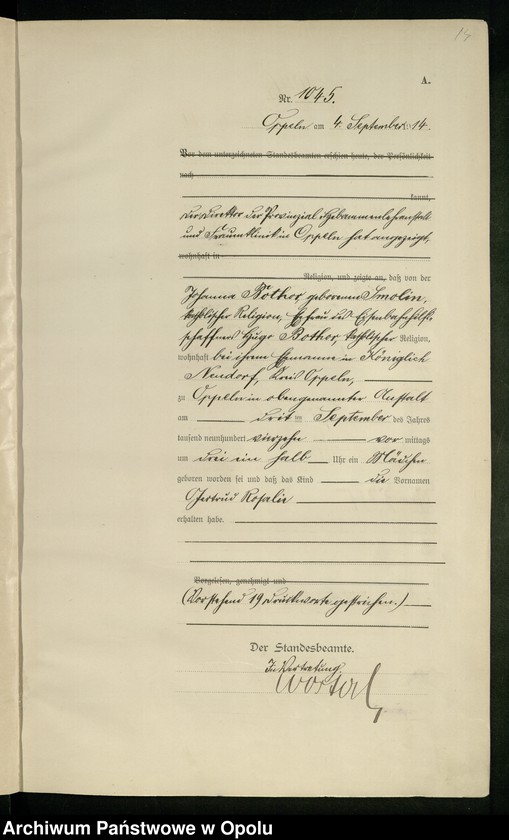 14
A.
Nr. 1045.
Oppeln am 4. September 1914.
Vor dem unterzeichneten Standesbeamten erschien heute, der Persönlichkeit
nach
kannt,
Der Direktor der Provinzial Hebammenlehranstalt
und Frauenklinik in Oppeln hat angezeigt,
wohnhaft in
Religion, und zeigte an, daß von der
Johanna Bother geborenen Smolin,
katholischer Religion, Ehefrau des Eisenbahnhilfs-
schaffners Hugo Bother, katholischer Religion,
wohnhaft bei ihrem Ehemanne in Königlich
Neudorf, Kreis Oppeln,
zu Oppeln in obengenannter Anstalt
am drei ten September des Jahres
tausend neunhundert vierzehn vor mittags
um drei ein halb Uhr ein Mädchen
geboren worden sei und daß das Kind die Vornamen
Gertrud Rosalie
erhalten habe.
Vorgelesen, genehmigt und
(Vorstehend 19 Druckworte gestrichen.)
Der Standesbeamte.
In Vertretung
Archiwum Państwowe w Opolu